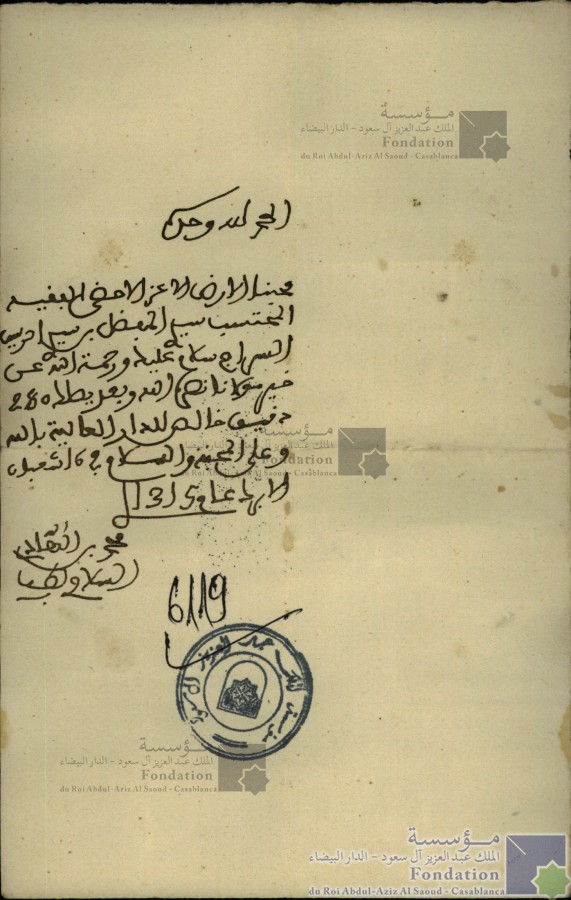 مؤسسة
الملك عبد العزيز آل سعود - الدار البيضاء
Fondation
du Roi Abdul-Aziz Al Saoud - Casablanca
الحمد لله وحده
محبنا الارضى الاعز الاحضى الفقيه
المحتسب سيدي المفضل بن سيدي ادريس
السراج سلام عليك ورحمة الله عن
خير مولانا نصره الله وبعد يصلك 280
دقيق خالص للدار العالية بالله
وعلى المحبة والسلام في 16 شعبان
الابرك عام 1315
محمد بن
مؤسسة
الملك عبد العزيز آل سعود - الدار البيضاء
Fondation
du Roi Abdul-Aziz Al Saoud - Casablanca
6119
مؤسسة الملك عبد العزيز آل سعود
مؤسسة
الملك عبد العزيز آل سعود - الدار البيضاء
Fondation
du Roi Abdul-Aziz Al Saoud - Casablanca
مؤسسة
الملك عبد العزيز آل سعود - الدار البيضاء
Fondation
du Roi Abdul-Aziz Al Saoud - Casablanca